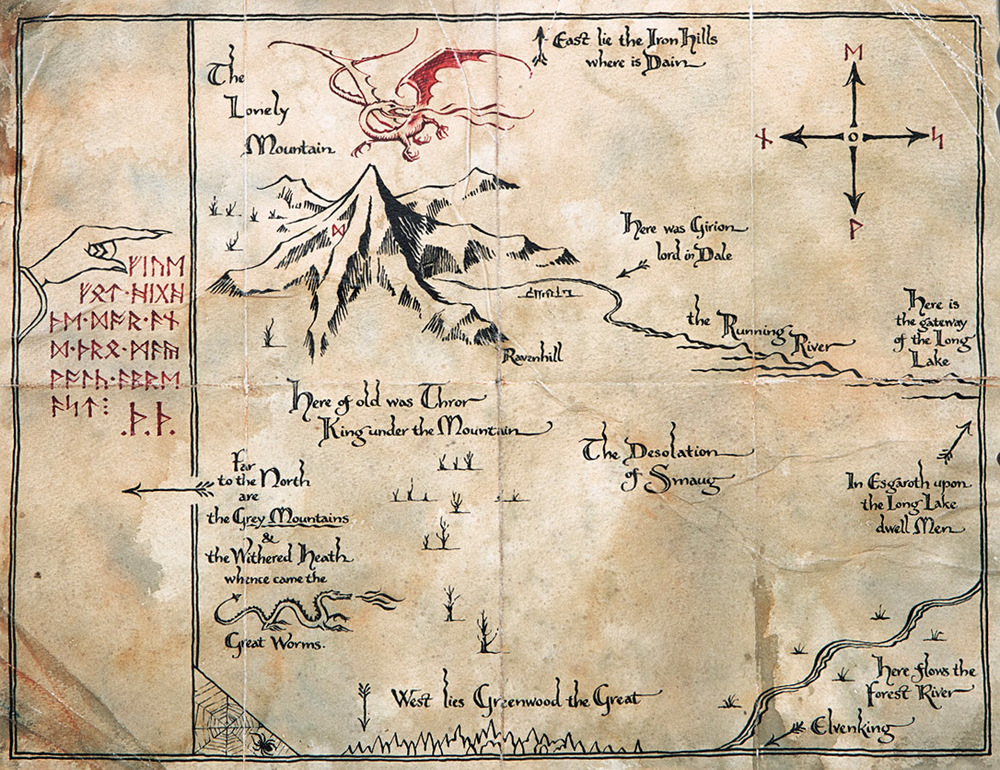 East lie the Iron Hills
where is Dain
The
Lonely
Mountain
ᛖ
ᚾ
ᛋ
ᚹ
ᛞ
Here was Girion
lord in Dale
ᚠᛁᚢᛖ
ᚠᚩᛏ·ᚻᛁᚷᚻ
ᚦᛖ·ᛞᚩᚱ·ᚪᚾ
ᛞ·ᚦᚱᛟ·ᛗᚪᚣ
ᚹᚪᛚᚳ·ᚪᛒᚱᛖ
ᚪᛋᛏ⁝
.ᚦ.ᚦ.
the Running
River
Here is
the gateway
of the Long
Lake
Ravenhill
Here of old was Thror
King under the Mountain
The Desolation
of Smaug
Far
to the North
are
the Grey Mountains
&
the Withered Heath
whence came the
Great Worms.
In Esgaroth upon
the Long Lake
dwell Men
Here flows the
Forest River
Elvenking
West lies Greenwood the Great